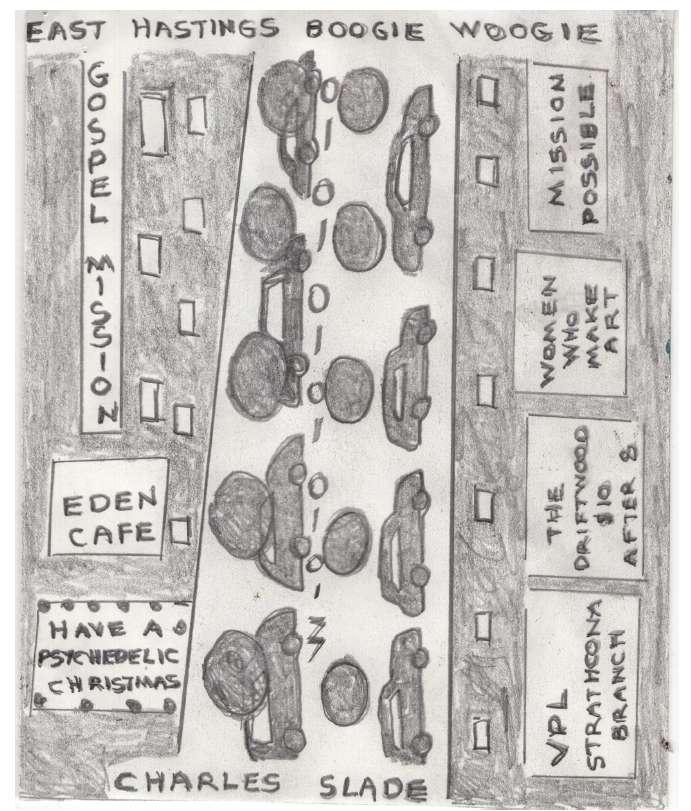 EAST HASTINGS BOOGIE WOOGIE
GOSPEL MISSION
EDEN
CAFE
HAVE A
PSYCHEDELIC
CHRISTMAS
MISSION
POSSIBLE
WOMEN
WHO
MAKE
ART
THE
DRIFTWOOD
$10
AFTER 8
VPL
STRATHCONA
BRANCH
CHARLES SLADE